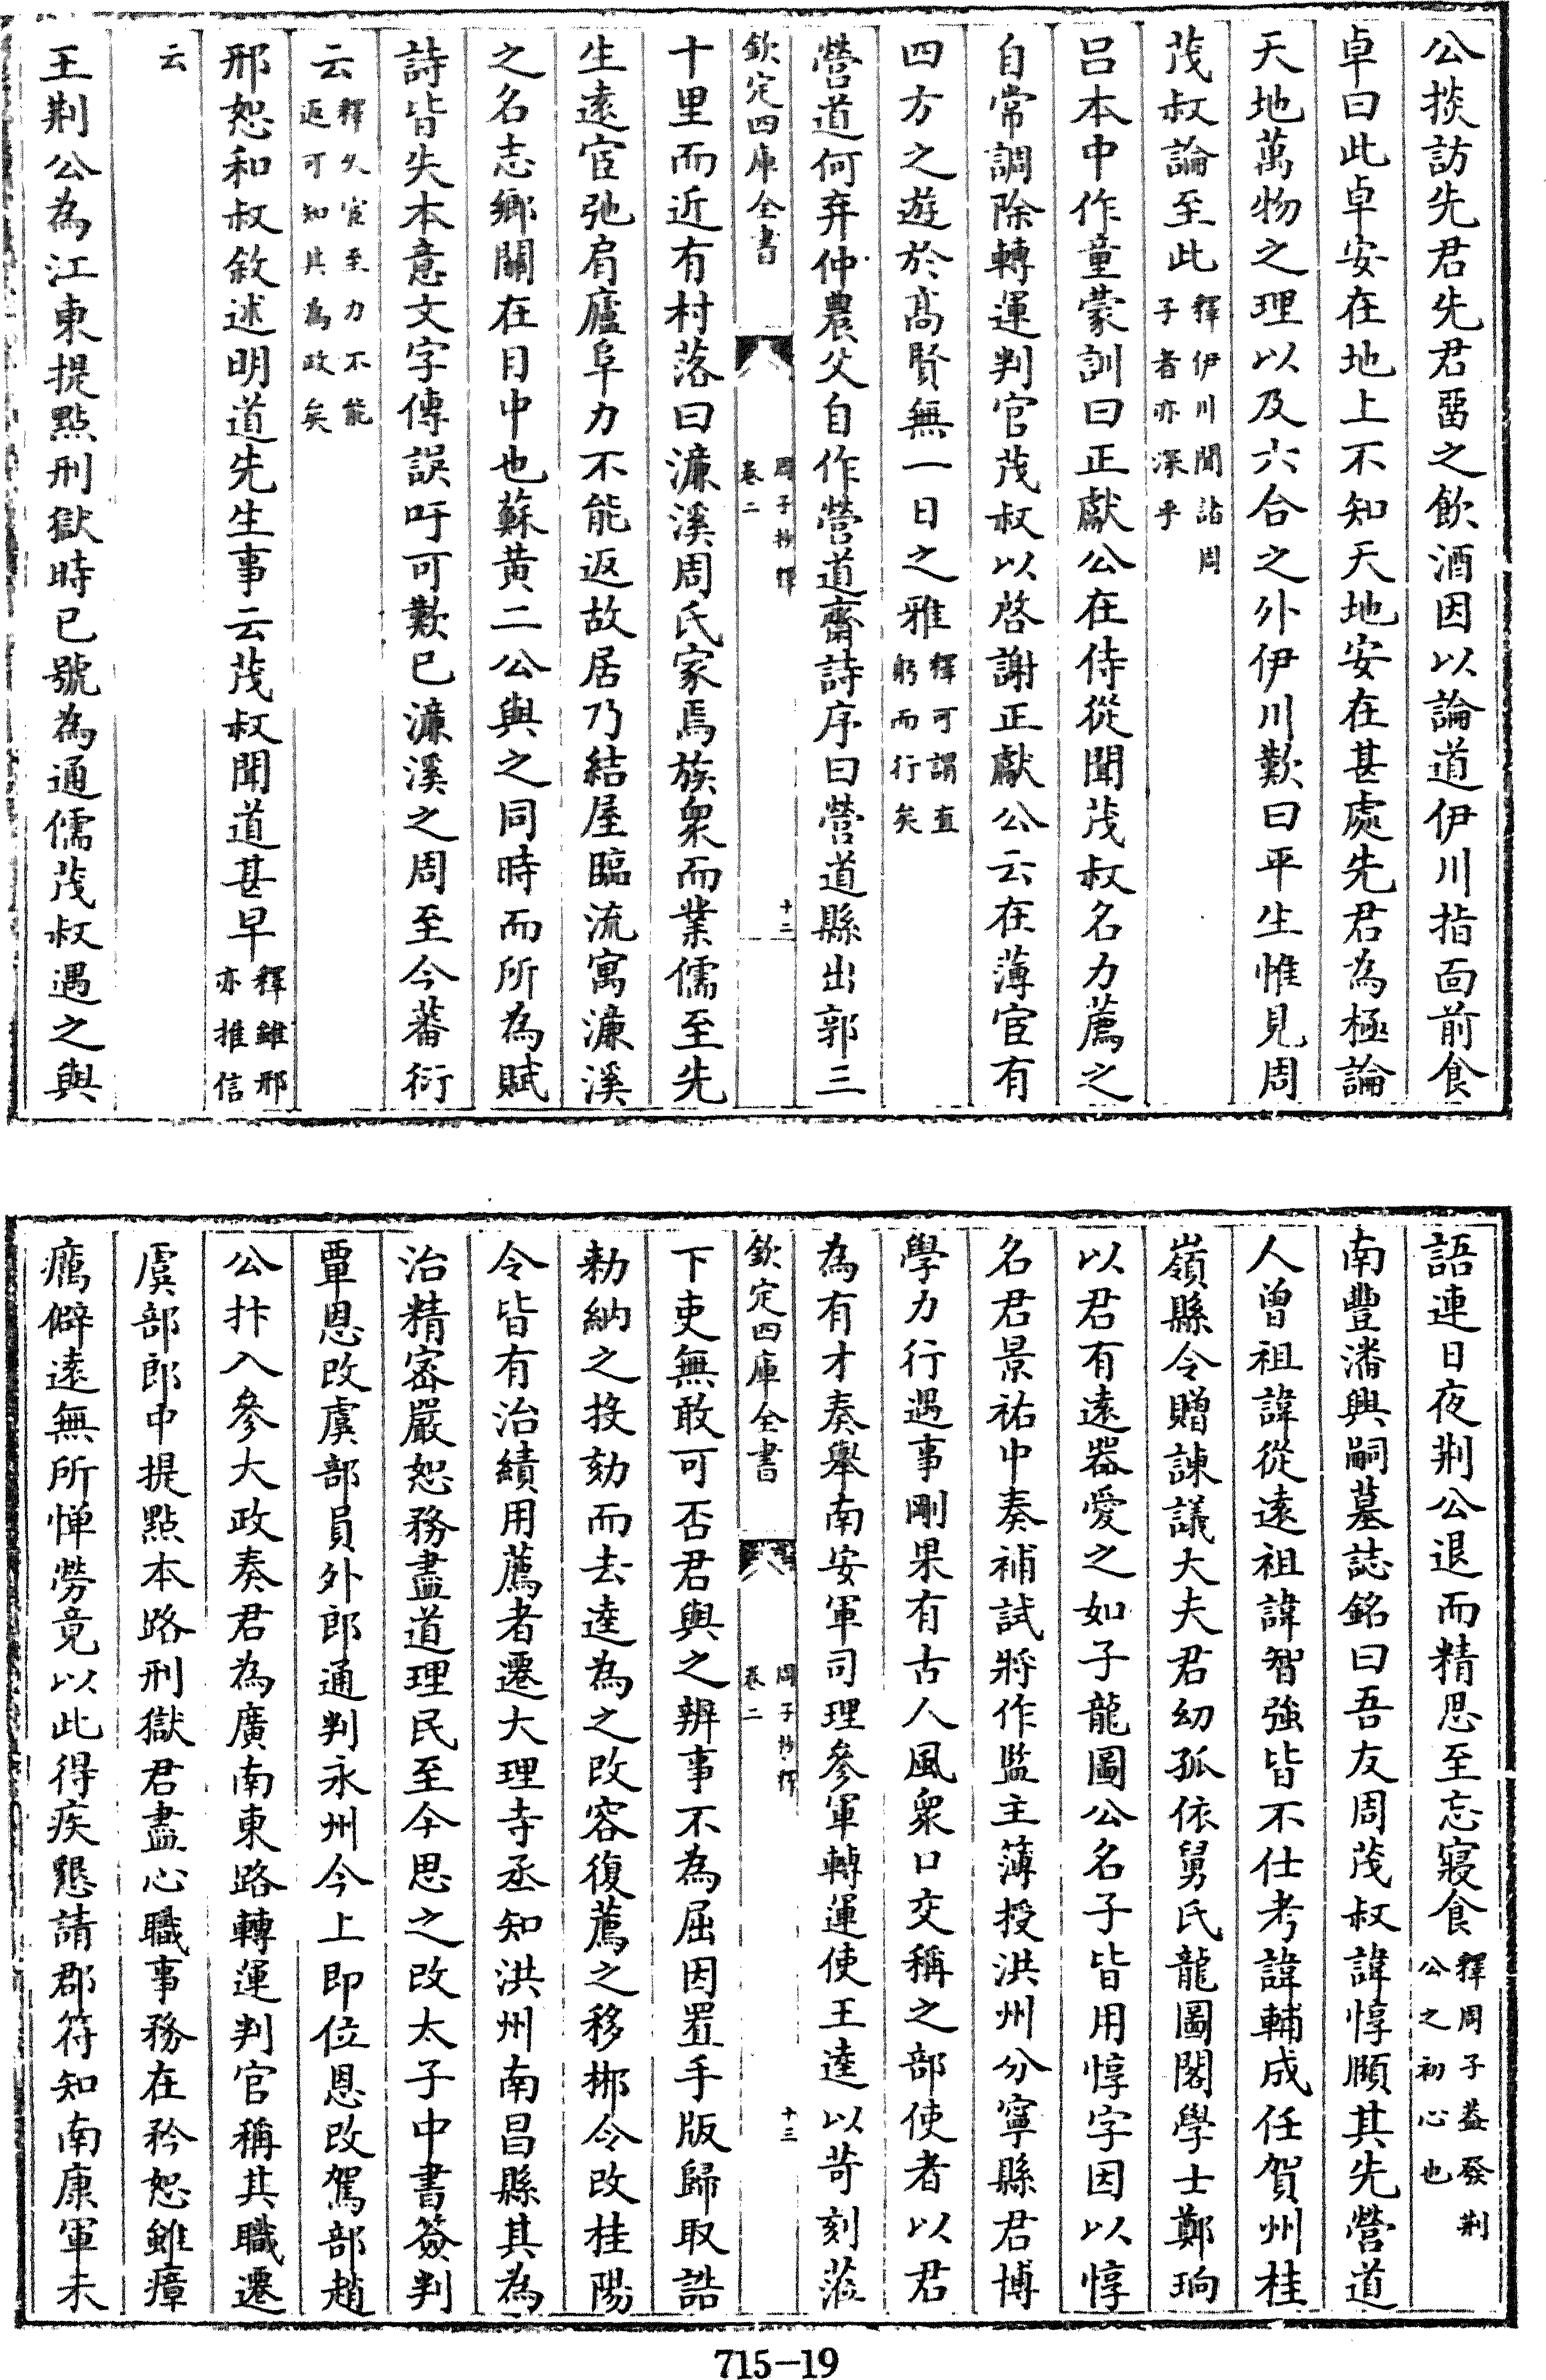 公掞訪先君先君畱之飲酒因以論道伊川指面前食
卓曰此卓安在地上不知天地安在甚處先君為極論
天地萬物之理以及六合之外伊川歎曰平生惟見周
茂叔論至此釋伊川聞詁周子者亦深乎
呂本中作童蒙訓曰正獻公在侍從聞茂叔名力薦之
自常調除轉運判官茂叔以啓謝正獻公云在薄宦有
四方之遊於髙賢無一日之雅釋可謂直躬而行矣
營道何弃仲農父自作營道齋詩序曰營道縣出郭三
欽定四庫全書
周子抄釋
卷二
十三
十里而近有村落曰濂溪周氏家焉族衆而業儒至先
生逺宦弛肩廬阜力不能返故居乃結屋臨流寓濂溪
之名志鄉關在目中也蘇黄二公與之同時而所為賦
詩皆失本意文字傳誤吁可歎已濂溪之周至今蕃衍
云釋久宦至力不能返可知其為政矣
邢恕和叔敘述明道先生事云茂叔聞道甚早釋雖邢亦推信
云
王荆公為江東提點刑獄時已號為通儒茂叔遇之與
語連日夜荆公退而精思至忘寢食釋周子葢發荆公之初心也
南豐潘興嗣墓誌銘曰吾友周茂叔諱惇頥其先營道
人曾祖諱從逺祖諱智強皆不仕考諱輔成任賀州桂
嶺縣令贈諫議大夫君幼孤依舅氏龍圖閣學士鄭珦
以君有逺器愛之如子龍圖公名子皆用惇字因以惇
名君景祐中奏補試將作監主簿授洪州分寧縣君博
學力行遇事剛果有古人風衆口交稱之部使者以君
為有才奏舉南安軍司理參軍轉運使王逵以苛刻蒞
欽定四庫全書
周子抄釋
卷二
十三
下吏無敢可否君與之辨事不為屈因置手版歸取誥
勅納之投劾而去逵為之改容復薦之移郴令改桂陽
令皆有治績用薦者遷大理寺丞知洪州南昌縣其為
治精宻嚴恕務盡道理民至今思之改太子中書簽判
覃恩改虞部員外郎通判永州今上即位恩改駕部趙
公抃入參大政奏君為廣南東路轉運判官稱其職遷
虞部郎中提點本路刑獄君盡心職事務在矜恕雖瘴
癘僻逺無所憚勞竟以此得疾懇請郡符知南康軍未
715-19